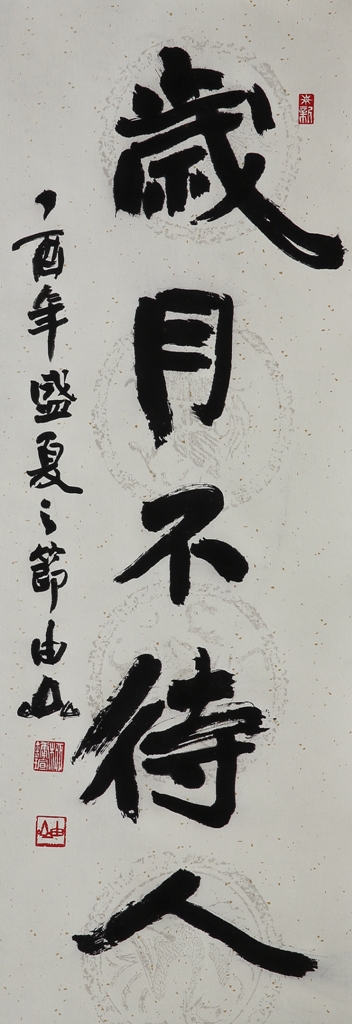 歲月不待人
丁酉年盛夏之節由山
由山